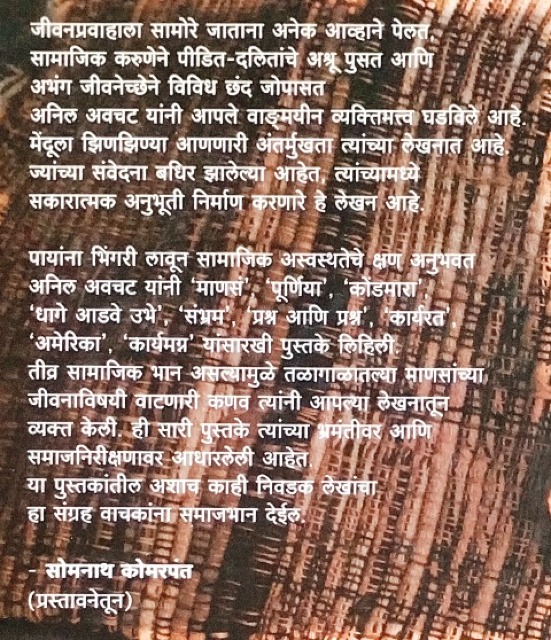 जीवनप्रवाहाला सामोरे जाताना अनेक आव्हाने पेलत,
सामाजिक करुणेने पीडित-दलितांचे अश्रू पुसत आणि
अभंग जीवनेच्छेने विविध छंद जोपासत
अनिल अवचट यांनी आपले वाङ्मयीन व्यक्तिमत्त्व घडविले आहे.
मेंदूला झिणझिण्या आणणारी अंतर्मुखता त्यांच्या लेखनात आहे.
ज्यांच्या संवेदना बधिर झालेल्या आहेत, त्यांच्यामध्ये
सकारात्मक अनुभूती निर्माण करणारे हे लेखन आहे.
पायांना भिंगरी लावून सामाजिक अस्वस्थतेचे क्षण अनुभवत
अनिल अवचट यांनी ‘माणसं’, ‘पूर्णिया’, ‘कोंडमारा’,
‘धागे आडवे उभे’, ‘संभ्रम’, ‘प्रश्न आणि प्रश्न’, ‘कार्यरत’,
‘अमेरिका’, ‘कार्यमग्न’ यांसारखी पुस्तके लिहिली.
तीव्र सामाजिक भान असल्यामुळे तळागाळातल्या माणसांच्या
जीवनाविषयी वाटणारी कणव त्यांनी आपल्या लेखनातून
व्यक्त केली. ही सारी पुस्तके त्यांच्या भ्रमंतीवर आणि
समाजनिरीक्षणावर आधारलेली आहेत.
या पुस्तकांतील अशाच काही निवडक लेखांचा
हा संग्रह वाचकांना समाजभान देईल.
- सोमनाथ कोमरपंत
(प्रस्तावनेतून)